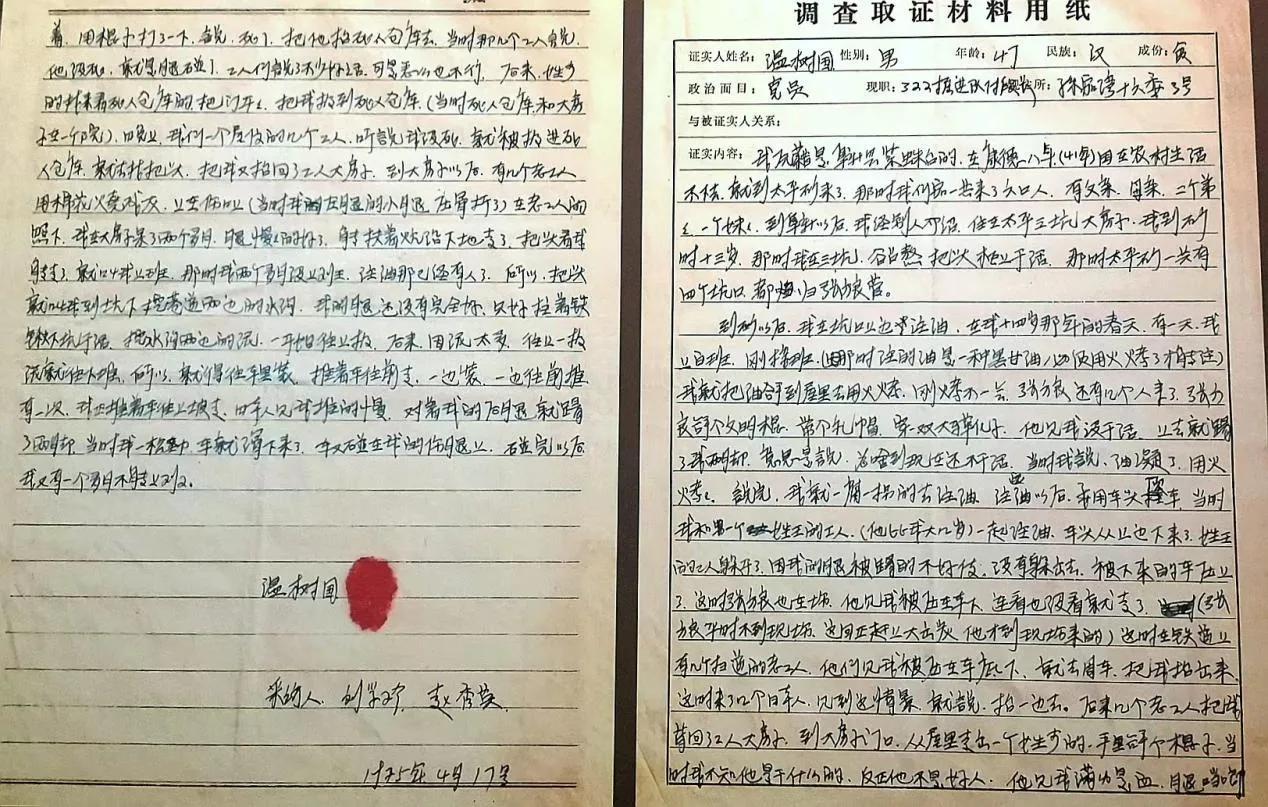 调查取证材料用纸
证实人姓名：温树国 性别：男 年龄：47 民族：汉 成份：贫
政治面目：党员 现职：322掘进队付段长 住所：孙家湾十六委3号
与被证实人关系：
证实内容：我原籍是 在康德八年（41年）因在农村生活
不佳，就到太平矿来了，那时我们家一共来了六口人，有父亲、母亲、二个弟
弟、一个妹妹，到阜新以后，我经别人介绍，住在太平三坑大房子，我到矿
时十三岁，那时我在三坑， 把头 干活，那时太平矿一共有
四个坑口，都归张方良管。
到矿以后，我在坑口上边学注油，在我十四岁那年的春天，有一天，我
上白班，刚接班（那时注的油是一种黑甘油，必须用火烤了才能注）
我就把油拿到屋里去用火烤，刚烤不一会，张方良还有几个人来了，张方
良拿个文明棍，带个礼帽，穿双大革儿，他见我没干活，上去就踢
了我两脚，意思是说，为啥到现在还不干活，当时我说，油凝了，用火
烤烤，说完，我就一瘸一拐的去注油，注油以后，车用车头 车，当时
我和另一个姓王的工人，（他比我大几岁）一起注油，车头从上边下来了，姓王
的工人躲开了，因我的腿被踢的不好使，没有躲出去，被下来的车压上
了，这时张方良也在场，他见我被压在车下，连看也没看就走了，（张
方良平时不到现场，这回正赶上大出炭，他才到现场来的）这时在铁道上
有几个扫道的老工人，他们见我被压在车底下，就去 车，把我抬出来，
这时来了几个日本人，见到这情景，就说，抬一边去。后来几个老工人把我
背回了工人大房子，到大房子门口，从屋里走出一个姓 的，手里拿个木棍子，当
时我不知他是干什么的，反正他不是好人，他见我满身是血，腿当啷
着，用棍子打了一下，说，死了，把他抬死人仓库去，当时那几个工人说，
他没死，就是腿碰了，工人们说了不少好话，可是怎么也不行，后来，姓 
的 来看死人仓库的，把门开开，把我抬到死人仓库（当时死人仓库和大房
子在一个院），晚上，我们一个屋住的几个工人，听说我没死，就被抬进死
人仓库，就去找把头，把我又抬回了工人大房子，到大房子以后，有几个老工人
用棉花火烧成灰，上在伤口上（当时我的左腿的小腿压骨折了）在老工人的
照顾下，我在大房子呆了两个多月，腿慢慢的好了，能扶着炕沿下地走了，把头看我
能走了，就叫我上班，那时我两个多月没上班，注油那已经有人了，所以，把头
就叫我到坑下挖巷道两边的水沟，我的腿还没有完全好，只好拄着铁
锹下坑干活，挖水沟两边的流，一开始往上扔，后来，因流太多，往上一扔
流就往下 ，所以，就得往车里装，推着车往前走，一边装，一边往前推，
有一次，我正推着车往上坡走，日本人见我推的慢，对着我的后腿就踢
了两脚，当时我一松劲，车就滑下来了，车又碰在我的伤腿上，碰完以后
我又有一个多月不能上班。
温树国
采访人 刘学 赵秀英
1975年4月17日